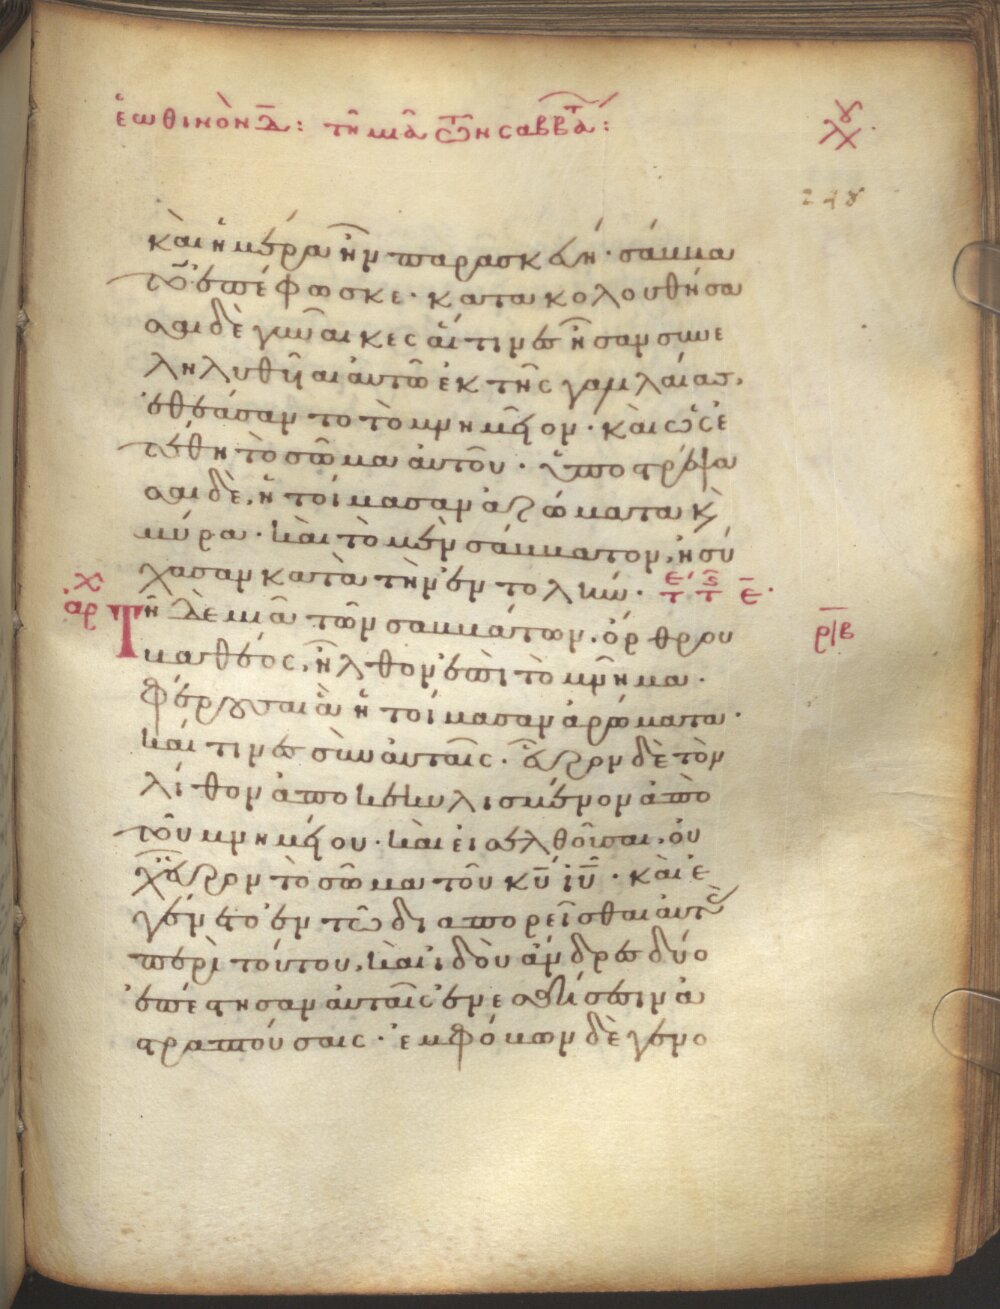 ἑωθινὸν Δ: τῆ μιᾶ τῶν σαββάτ:
καὶ ἡμέρα ἦν παρασκευή· σάββα
τον ἐπέφωσκε· κατακολουθήσα
σαι δὲ γυναῖκες αἵτινες ἦσαν συνε
ληλυθῦιαι αὐτῶ ἐκ τῆς γαλιλαίας,
ἐθεάσαντο τὸ μνημεῖον· καὶ ὡς ἐ
τέθη τὸ σῶμα αὐτοῦ· ὑποστρέψα
σαι δὲ, ἡτοίμασαν ἀρώματα κὶ
μύρα· καὶ τὸ μὲν σάββατον, ἡσύ
χασαν κατὰ τὴν ἐντολήν· ε
Τῆ δὲ μιᾶ τῶν σαββάτων, ὄρθρου
βαθέος, ἦλθον ἐπὶ τὸ μνῆμα·
φέρουσαι ἃ ἡτοίμασαν ἀρώματα·
καί τινες σὺν αὐταῖς· εὗρον δὲ τὸν
λίθον ἀποκεκυλισμένον ἀπὸ
τοῦ μνημείου· καὶ εἰσελθοῦσαι, οὐ
χ εὗρον τὸ σῶμα τοῦ κῦ ἰῦ· καὶ ἐ
γένετο ἐν τῶ διαπορεῖσθαι αὐτὰς
περὶ τούτου, καὶ ἰδοὺ ἄνδρες δύο
ἐπέστησαν αὐταῖς ἐν ἐσθήσεσιν ἀ
στραπτούσαις· ἐμφόβων δὲ γενο